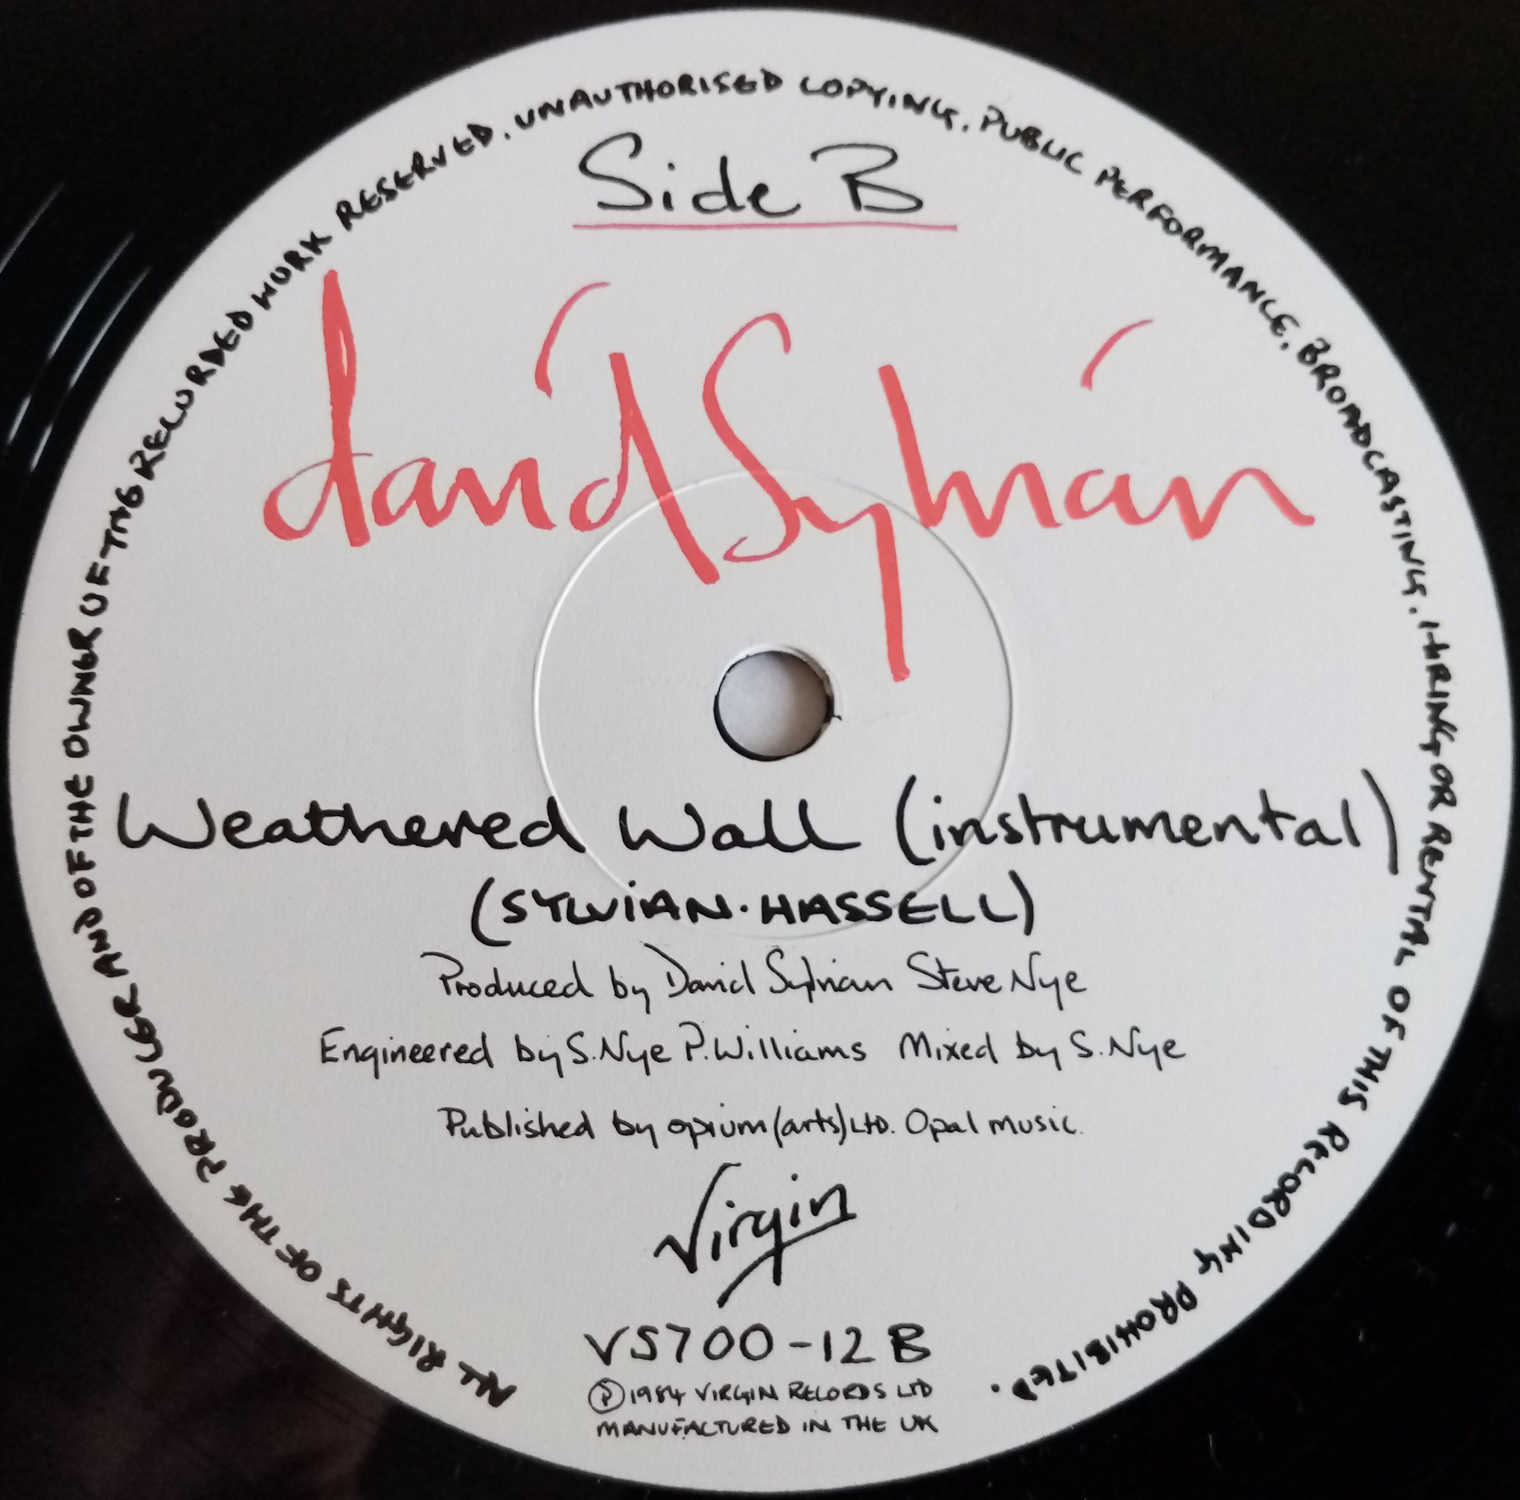 ALL RIGHTS OF THE PRODUCER AND OF THE OWNER OF THE RECORDED WORK RESERVED. UNAUTHORISED COPYING, PUBLIC PERFORMANCE, BROADCASTING, HIRING OR RENTAL OF THIS RECORDING PROHIBITED.
Side B
david Sylvian
Weathered Wall (instrumental)
(SYLVIAN·HASSELL)
Produced by David Sylvian Steve Nye
Engineered by S.Nye P.Williams Mixed by S.Nye
Published by opium (arts) LTD. Opal music.
Virgin
VS700-12 B
Ⓟ 1984 VIRGIN RECORDS LTD
MANUFACTURED IN THE UK